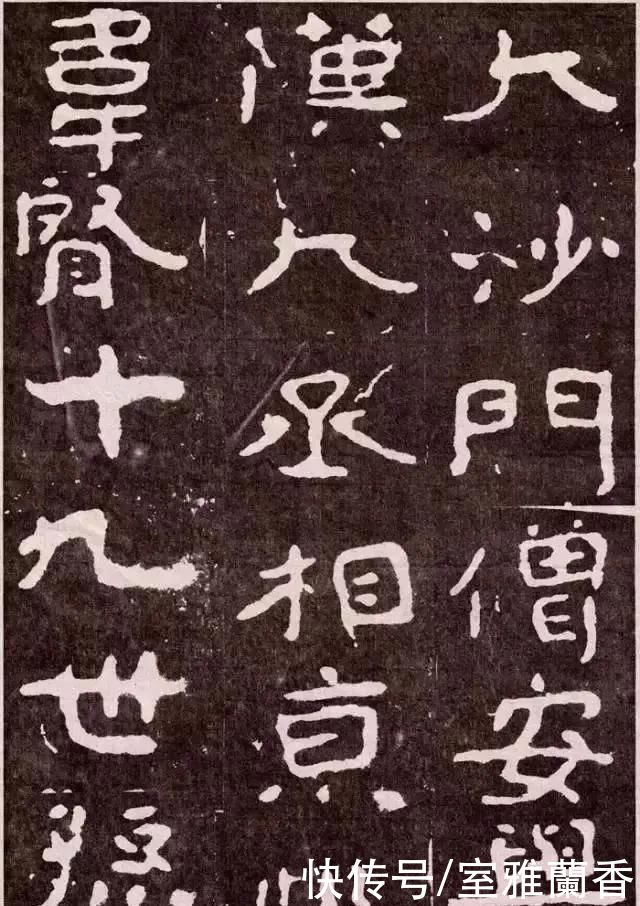 大沙門僧安與
漢大丞相京
韋賢十九世
快传号/室雅蘭香